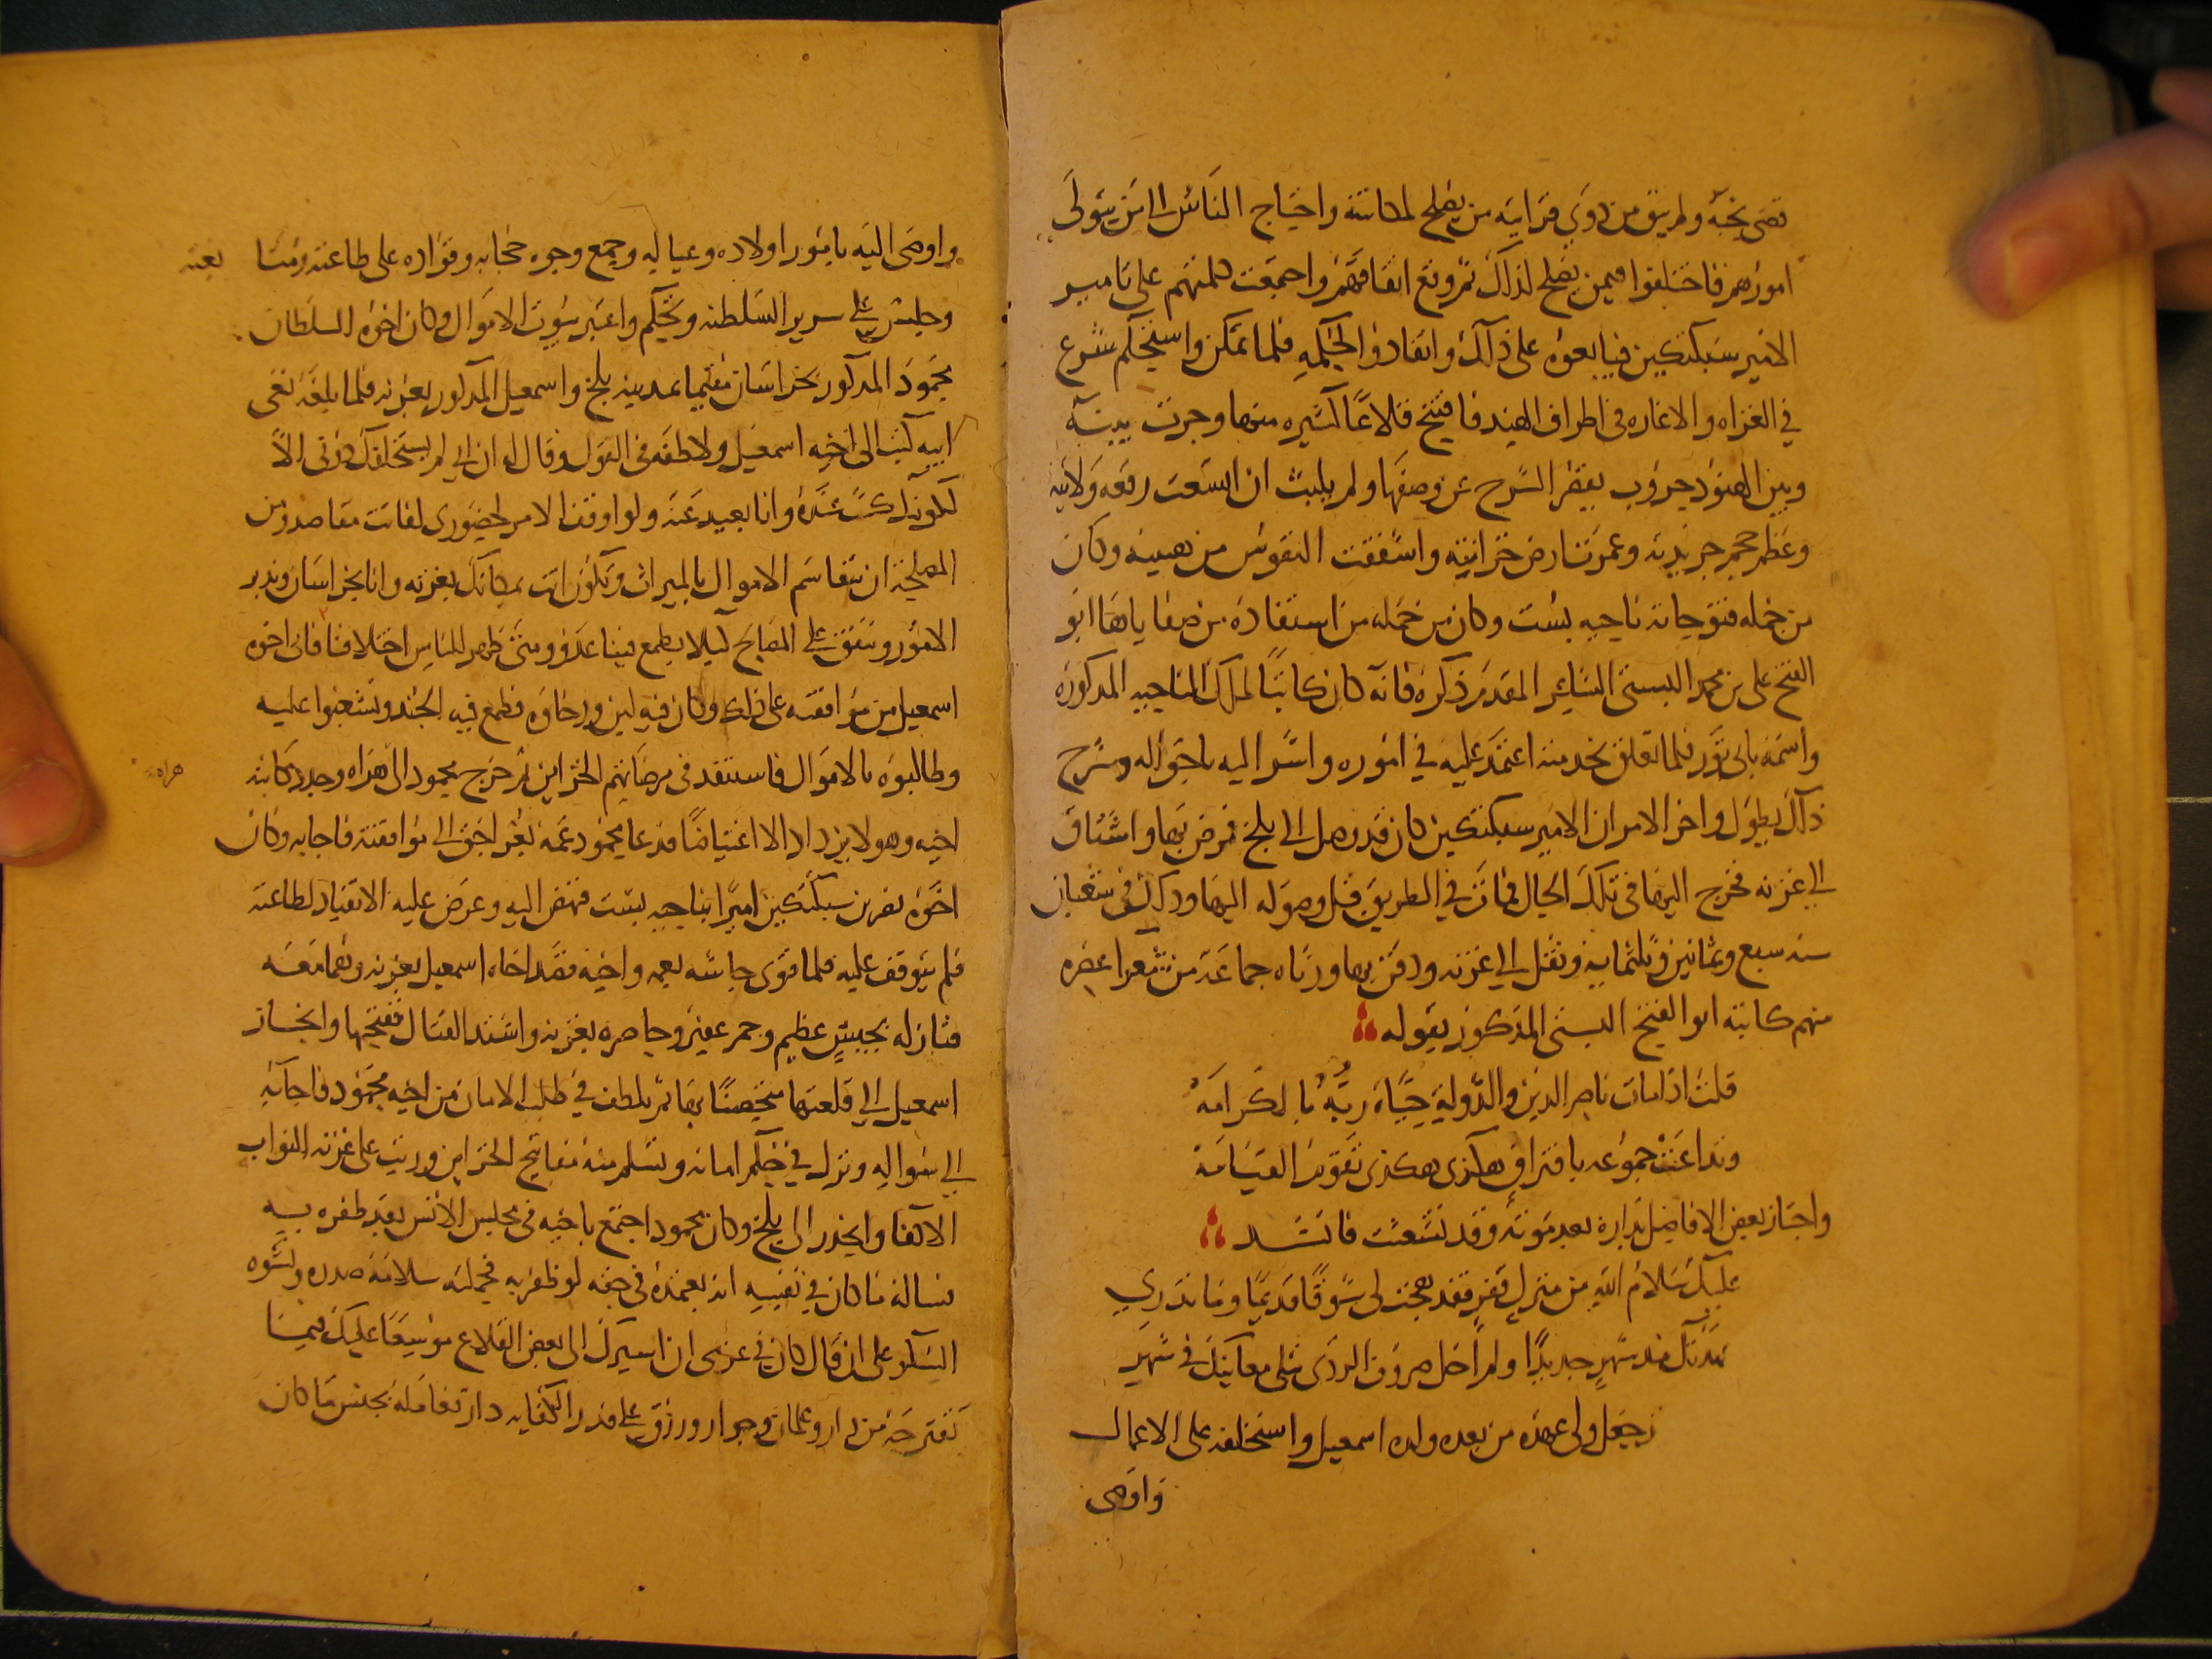 قضى نحبه ولم يبق من ذوي قرابته من يصلح لمكانته واحتاج الناس الى من يتولى
امورهم فاختلفوا فيمن يصلح لذلك ثم وقع اتفاقهم واجمعت كلمتهم على تامير
الامير سبكتكين فبايعوه على ذلك وانقادوا لحكمه فلما تمكن واستحكم شرع
في الغزاه والاغاره في اطراف الهند فافتتح قلاعًا كثيره منها وجرت بينه
وبين الهنود حروب يقصر الشرح عن وصفها ولم يلبث ان اتسعت رقعه ولايته
وعظم حجم جريدته وعمرت ارض خزانته واشفقت النفوس من هيبته وكان
من جمله فتوحاته ناحيه بست وكان من جمله من استفاده من صفاياها ابو
الفتح على بن محمد البستى الشاعر المقدم ذكره فانه كان كاتبًا لملك الناحيه المذكوره
واسمه بابى ثور فلما تعلق بخدمته اعتمد عليه في اموره واسر اليه باحواله وشرح
ذلك يطول واخر الامر ان الامير سبكتكين كان قد وصل الى بلخ فمرض بها واشتاق
الى غزنه فخرج اليها في تلك الحال فمات في الطريق قبل وصوله اليها وذلك في شعبان
سنه سبع وثمانين وثلثمايه ونقل الى غزنه ودفن بها ورثاه جماعة من شعرا عصره
منهم كاتبه ابو الفتح البستى المذكور بقوله
قلت اذا مات ناصر الدين والدولة حيّاه ربه بالكرامه
وتداعت جموعه بافتراق هكذى هكذى تقوم القيامة
واجتاز بعض الافاضل بداره بعد موته وقد تشعثت فانشد
عليك سلام الله من منزل قفر فقد هجت لى شوقًا قديمًا وما تدري
عهدتك مذ شهر جديدًا ولم اخل صروف الردى تبلى مغانيك في شهر
وجعل ولى عهده من بعده ولده اسمعيل واستخلفه على الاعمال
واوصى
واوصى اليه بامور اولاده وعياله وجمع وجوه حجابه وقواده على طاعته ومتابعته
وجلس على سرير السلطنه وتحكم واعتبر بيوت الاموال وكان اخوه السلطان
محمود المذكور بخراسان مقيما بمدينه بلخ واسمعيل المذكور بغزنه فلما بلغه نعى
ابيه كتب الى اخيه اسمعيل ولاطفه فى القول وقال له ان ابى لم يستخلفك دونى الا
لكونك كنت عنده وانا بعيد عنه ولو اوقف الامر لحضورى لفاتت مقاصده ومن
المصلحة ان نتقاسم الاموال بالميراث وتكون انت بمكانك بغزنه وانا بخراسان وندبر
الامور ونتفق على المصالح كيلا يطمع فينا عدو ومتى ظهر للناس اختلافنا فابى اخوه
اسمعيل من موافقته على ذلك وكان فيه لين ورخاوه فطمع فيه الجند وشغبوا عليه
وطالبوه بالاموال فاستنفد فى مرضاتهم الخزاين ثم خرج محمود الى هراه وجدد مكاتبه
هراه
اخيه وهو لا يزداد الا اعتياصًا فدعا محمود عمه بغراجق الى موافقته فاجابه وكان
اخوه نصر بن سبكتكين اميرًا بناحيه بست فنهض اليه وعرض عليه الانقياد لطاعته
فلم يتوقف عليه فلما قوى جاشه بعمه واخيه قصد اخاه اسمعيل بغزنه وهما معه
فنازله بجيش عظيم وجم غفير وحاصره بغزنه واشتد القتال ففتحها وانحاز
اسمعيل الى قلعتها متحصنًا بها ثم تلطف في طلب الامان من اخيه محمود فاجابه
الى سواله ونزل في حكم امانه وتسلم منه مفاتيح الخزاين ورتب على غزنه النواب
الاكفا وانحدر الى بلخ وكان محمود اجتمع باخيه فى مجلس الانس بعد ظفره به
فساله ما كان في نفسه انه يعتمده فى حقه لو ظفر به فحملته سلامة صدره ونشوه
السكر على ان قال كان في عزمى ان اسيرك الى بعض القلاع موسعًا عليك فيما
تقترحه من دار وغلمان وجوار ورزق على قدر الكفايه دار فعامله بجنس ما كان